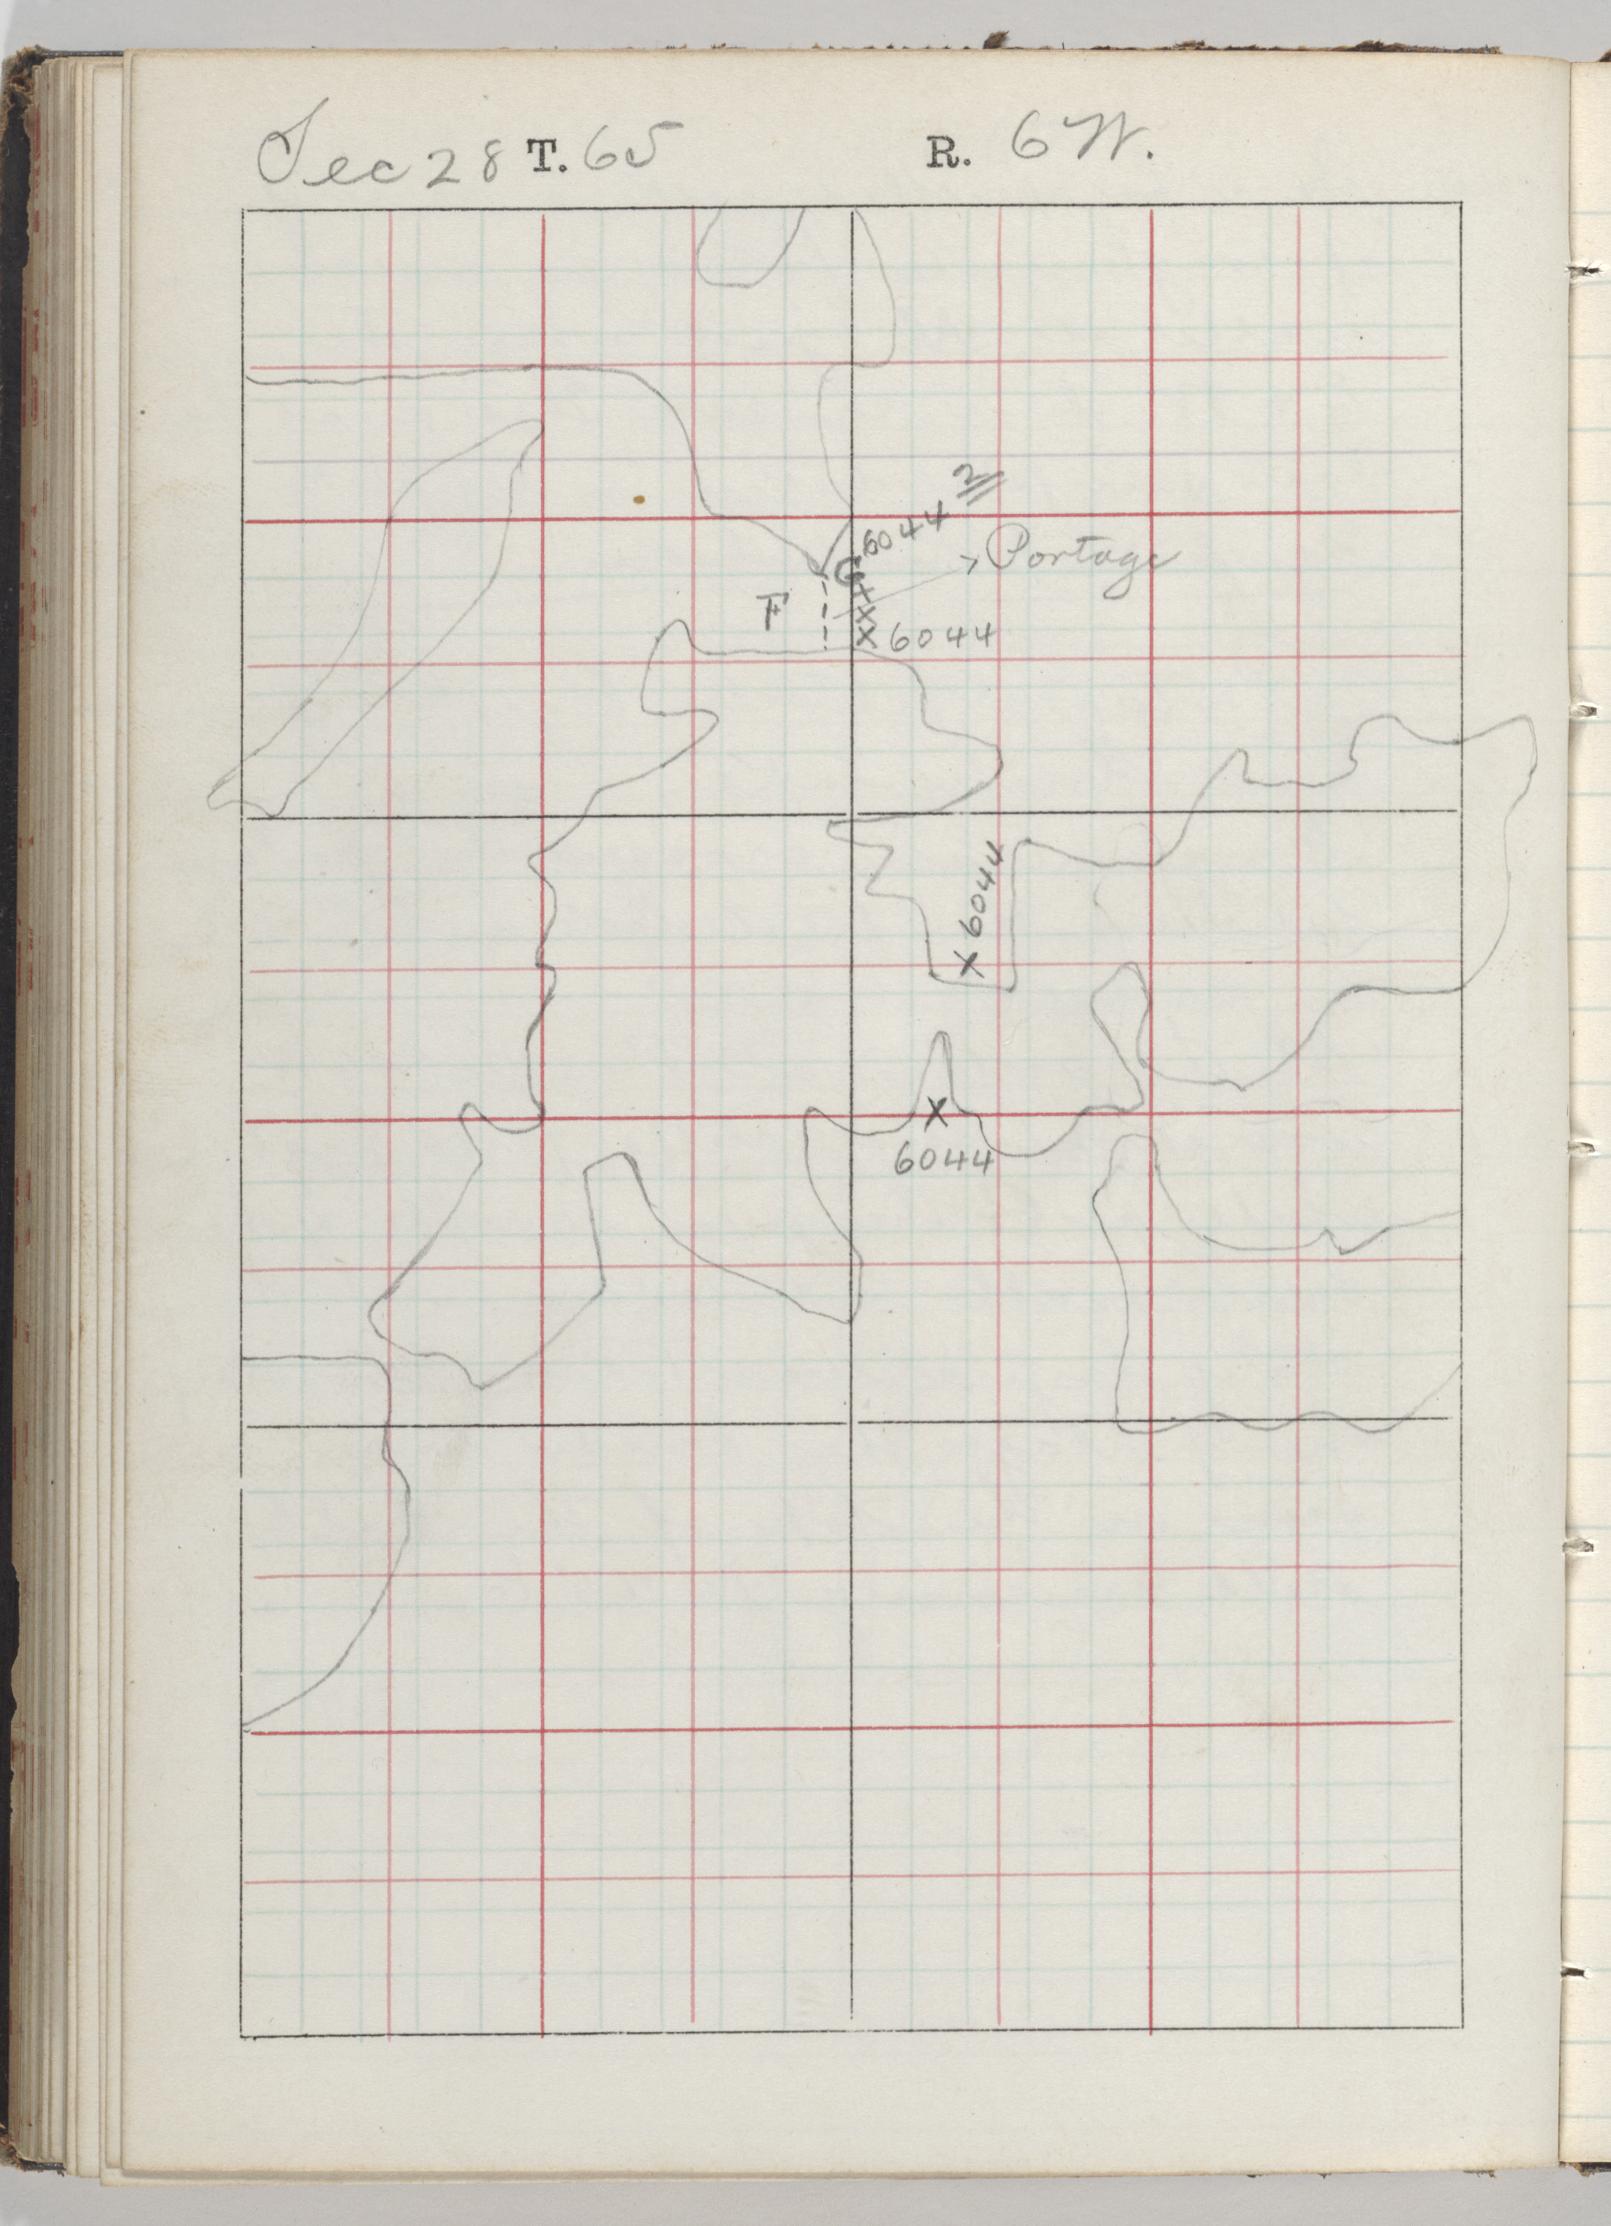 Sec 28 T. 65 R. 6 W.
6044 2
G
Portage
F
x
x
x 6044
x 6044
x
6044